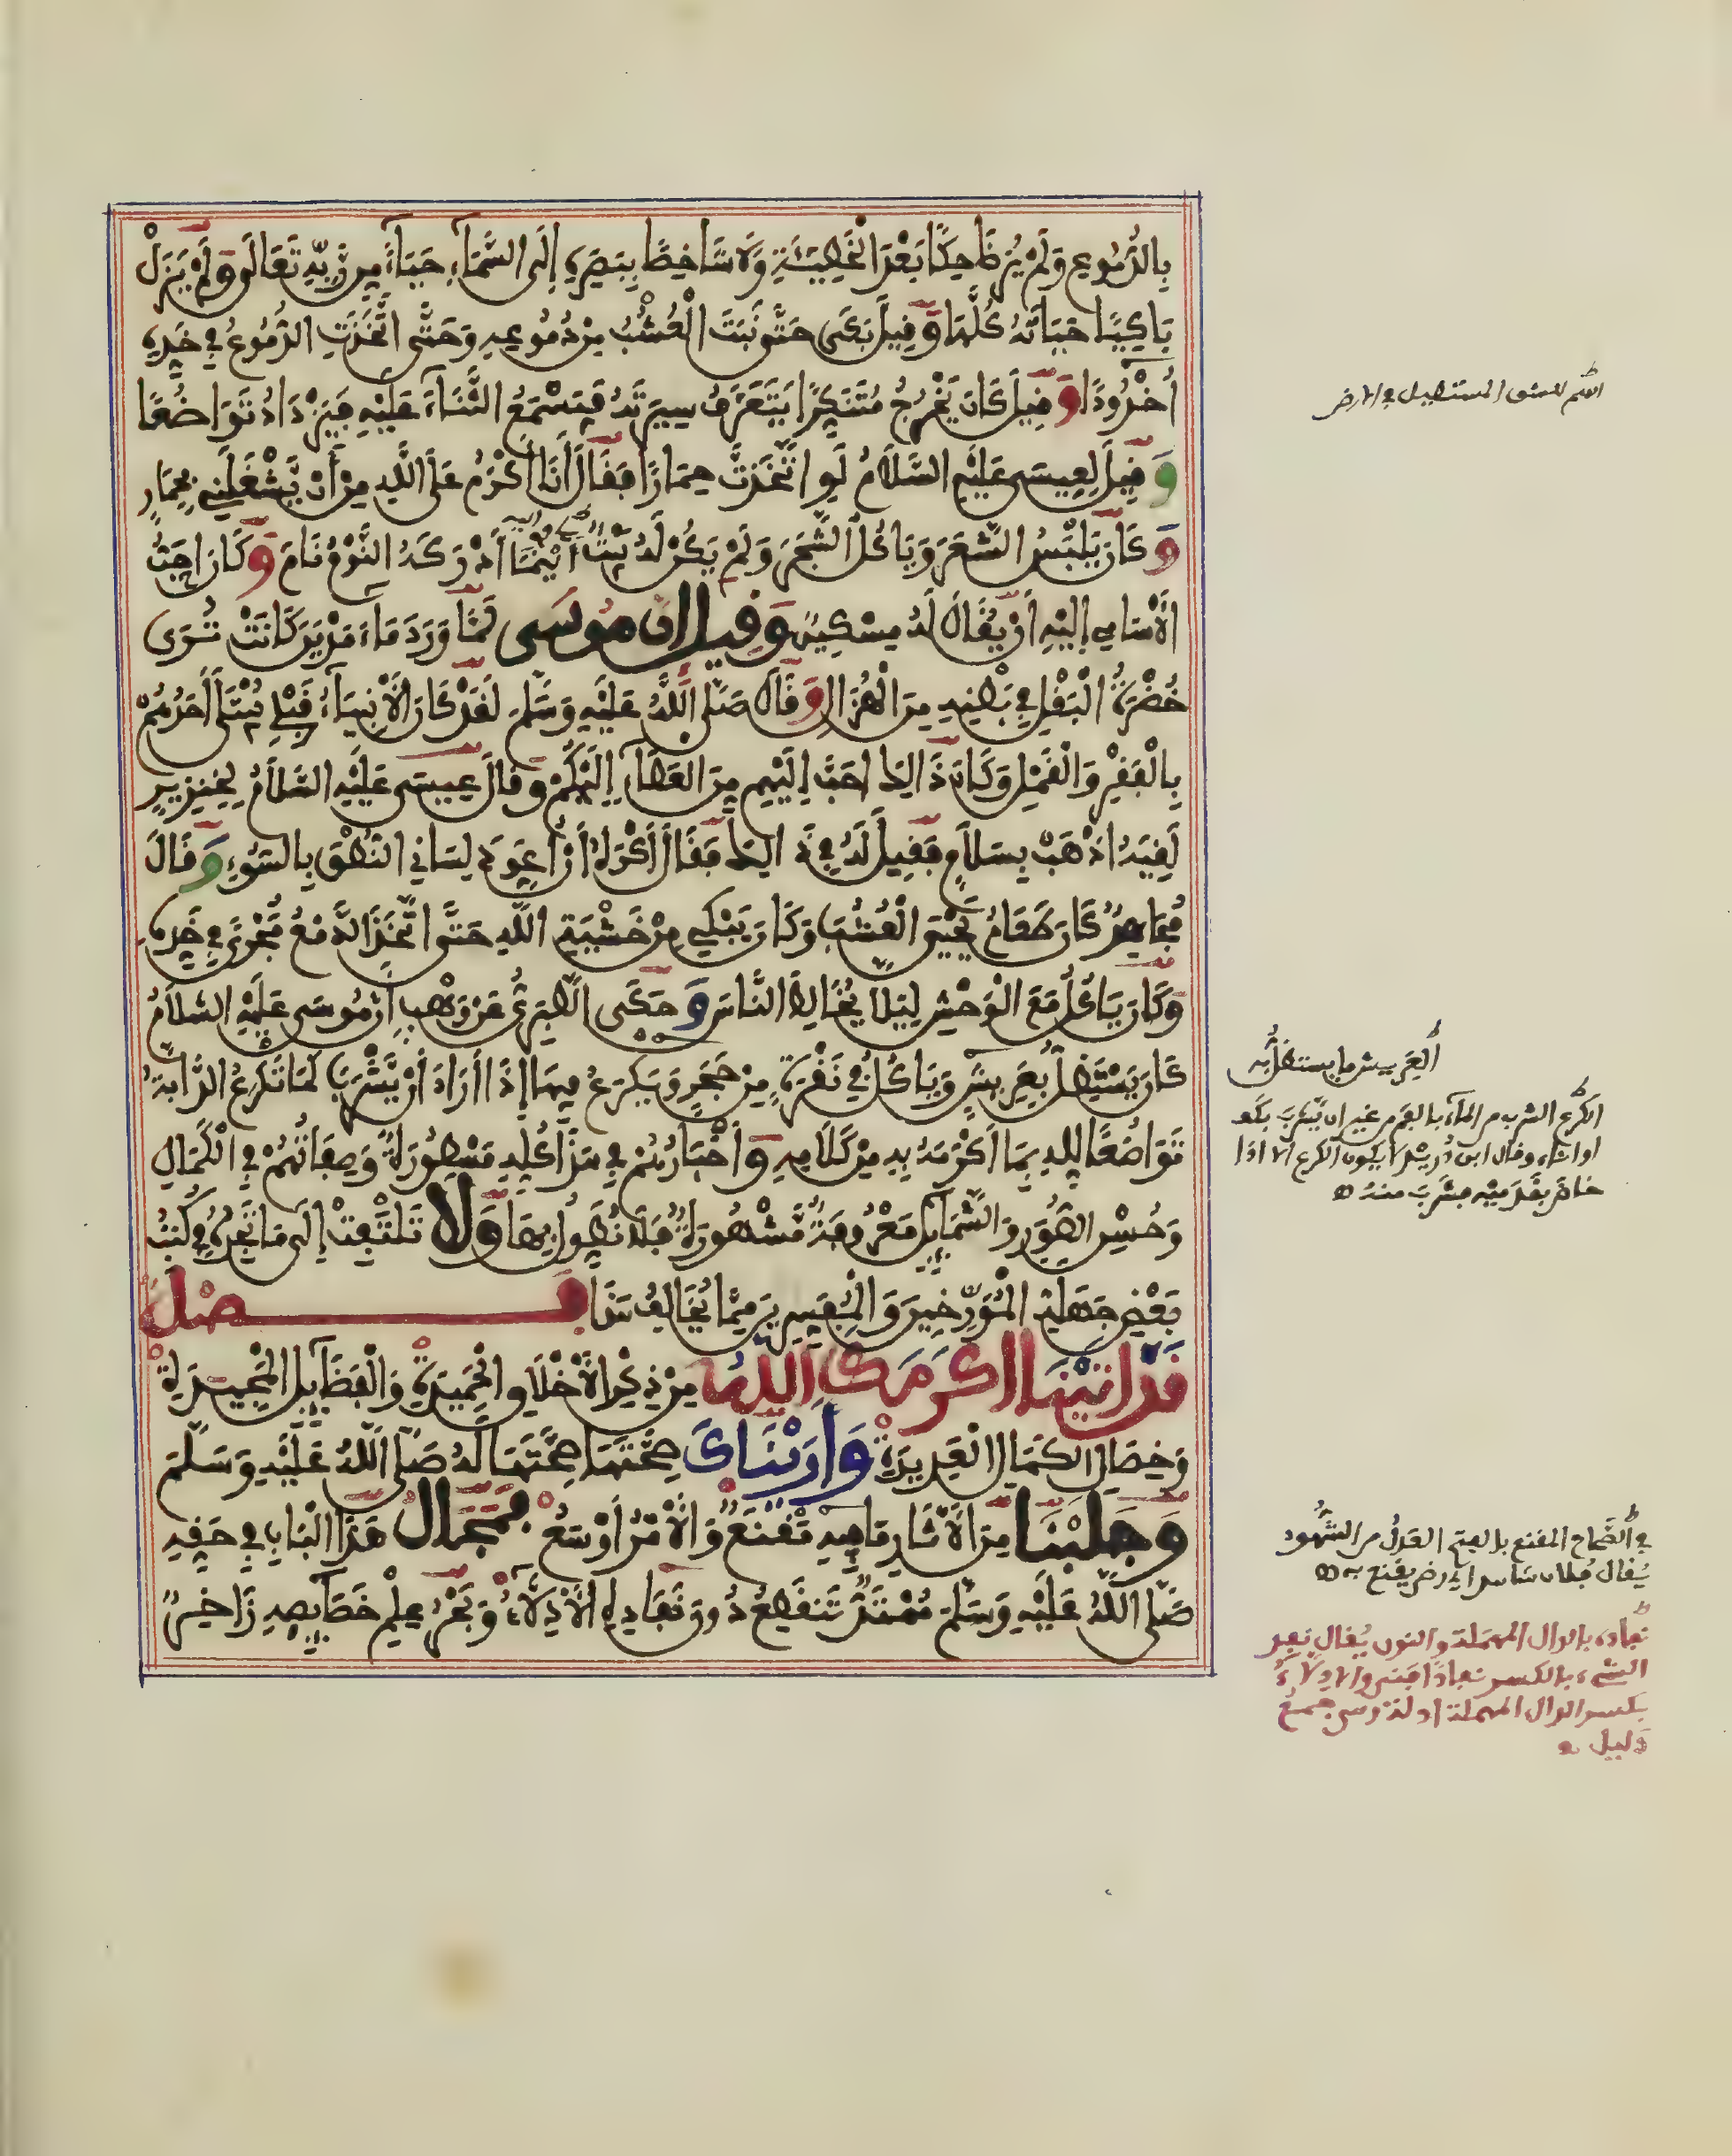 بِالدُّمُوعِ وَلَمْ يُرَ ضَاحِكًا بَعْدَ الْخَطِيئَةِ وَلَا شَاخِصًا بِبَصَرِهِ إِلَى السَّمَاءِ حَيَاءً مِن رَّبِّهِ تَعَالَى وَلَمْ يَزَلْ
بَاكِيًا حَيَاتَهُ كُلَّهَا وَقِيلَ بَكَى حَتَّى نَبَتَ الْعُشْبُ مِنْ دُمُوعِهِ وَحَتَّى اتَّخَذَتِ الدُّمُوعُ فِي خَدِّهِ
أُخْدُودًا وَقِيلَ كَانَ يَخْرُجُ مُتَنَكِّرًا يَتَعَرَّفُ سِيرَتَهُ فَيَسْمَعُ الثَّنَاءَ عَلَيْهِ فَيَزْدَادُ تَوَاضُعًا
وَقِيلَ لِعِيسَى عَلَيْهِ السَّلَامُ لَوِ اتَّخَذْتَ حِمَارًا فَقَالَ أَنَا أَكْرَمُ عَلَى اللَّهِ مِنْ أَنْ يَّشْغَلَنِي بِحِمَارٍ
وَكَانَ يَلْبَسُ الشَّعَرَ وَيَاكُلُ الشَّجَرَ وَلَمْ يَكُنْ لَهُ بَيْتٌ أَيْنَمَا أَدْرَكَهُ النَّوْمُ نَامَ وَكَانَ أَحَبُّ
الْأَسَامِي إِلَيْهِ أَنْ يُّقَالَ لَهُ مِسْكِينٌ وَقِيلَ إِنَّ مُوسَى لَمَّا وَرَدَ مَاءَ مَدْيَنَ كَانَتْ تُرَى
خُضْرَةُ الْبَقْلِ فِي بَطْنِهِ مِنَ الْهُزَالِ وَقَالَ صَلَّى اللَّهُ عَلَيْهِ وَسَلَّمَ لَقَدْ كَانَ الْأَنْبِيَاءُ قَبْلِي يُبْتَلَى أَحَدُهُمْ
بِالْفَقْرِ وَالْقَمْلِ وَكَانَ ذَالِكَ أَحَبَّ إِلَيْهِم مِنَ الْعَطَاءِ إِلَيْكُمْ وَقَالَ عِيسَى عَلَيْهِ السَّلَامُ لِخِنْزِيرٍ
لَقِيَهُ اذْهَبْ بِسَلَامٍ فَقِيلَ لَهُ فِي ذَالِكَ فَقَالَ أَكْرَهُ أَنْ أُعَوِّدَ لِسَانِي النُّطْقَ بِالسُّوءِ وَقَالَ
مُجَاهِدٌ كَانَ طَعَامُ يَحْيَى الْعُشْبَ وَكَانَ يَبْكِي مِنْ خَشْيَةِ اللَّهِ حَتَّى اتَّخَذَ الدَّمْعُ مَجْرًى فِي خَدِّهِ
وَكَانَ يَاكُلُ مَعَ الْوَحْشِ لِيَلَّا يُخَالِطَ النَّاسَ وَحَكَى الطَّبَرِيُّ عَنْ وَهْبٍ أَنَّ مُوسَى عَلَيْهِ السَّلَامُ
كَانَ يَسْتَظِلُّ بِعَرِيشٍ وَيَاكُلُ فِي نُقْرَةٍ مِنْ حَجَرٍ وَيَكْرَعُ فِيهَا إِذَا أَرَادَ أَنْ يَّشْرَبَ كَمَا تَكْرَعُ الدَّابَّةُ
تَوَاضُعًا لِلَّهِ بِمَا أَكْرَمَهُ بِهِ مِنْ كَلَامِهِ وَأَخْبَارُهُمْ فِي هَذَا كُلِّهِ مَسْطُورَةٌ وَصِفَاتُهُمْ فِي الْكَمَالِ
وَحُسْنِ الصُّوَرِ وَالشَّمَائِلِ مَعْرُوفَةٌ مَّشْهُورَةٌ فَلَا نُطَوِّلُ بِهَا وَلَا تَلْتَفِتْ إِلَى مَا تَجِدُهُ فِي كُتُبِ
بَعْضِ جَهَلَةِ الْمُؤَرِّخِينَ وَالْمُفَسِّرِينَ مِمَّا يُخَالِفُ هَذَا فَصْلٌ
قَدْ أَتَيْنَا أَكْرَمَكَ اللَّهُ مِنْ ذِكْرِ الْأَخْلَاقِ الْحَمِيدَةِ وَالْفَضَائِلِ الْمَجِيدَةِ
وَخِصَالِ الْكَمَالِ الْعَدِيدَةِ وَأَرَيْنَاكَ صِحَّتَهَا لَهُ صَلَّى اللَّهُ عَلَيْهِ وَسَلَّمَ
وَجَلَبْنَا مِنَ الْآثَارِ مَا فِيهِ مَقْنَعٌ وَالْأَمْرُ أَوْسَعُ فَمَجَالُ هَذَا الْبَابِ فِي حَقِّهِ
صَلَّى اللَّهُ عَلَيْهِ وَسَلَّمَ مُمْتَدٌّ تَنْقَطِعُ دُونَ نَفَادِهِ الْأَدِلَّاءُ وَبَحْرُ عِلْمِ خَصَائِصِهِ زَاخِرٌ
اسم للشق المستطيل في الارض
العَرِيش ما يستظلُّ به
الكرْع الشرب من الماء بالفم من غير ان يشرب بكف
او اناء وقال ابن دريد لا يكون الكرع الا اذا
خاض بقدميه فشرب منه
في الصَّحاح المقنع بالفتح العَدل من الشُّهود
يُقال فلان شاهد اي رضى يقنع به
نفاده بالدال المهملة والنون يُقال نفد
الشيء بالكسر نفادًا فنى والادلاء
بكسر الدال المهملة جمعُ
دليل